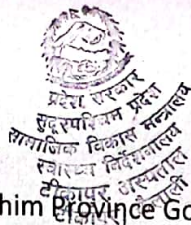 प्रदेश सरकार
सुदूरपश्चिम प्रदेश
सामाजिक विकास मन्त्रालय
स्वास्थ्य निर्देशनालय
टीकापुर अस्पताल
टीकापुर, कैलाली
him Province Go